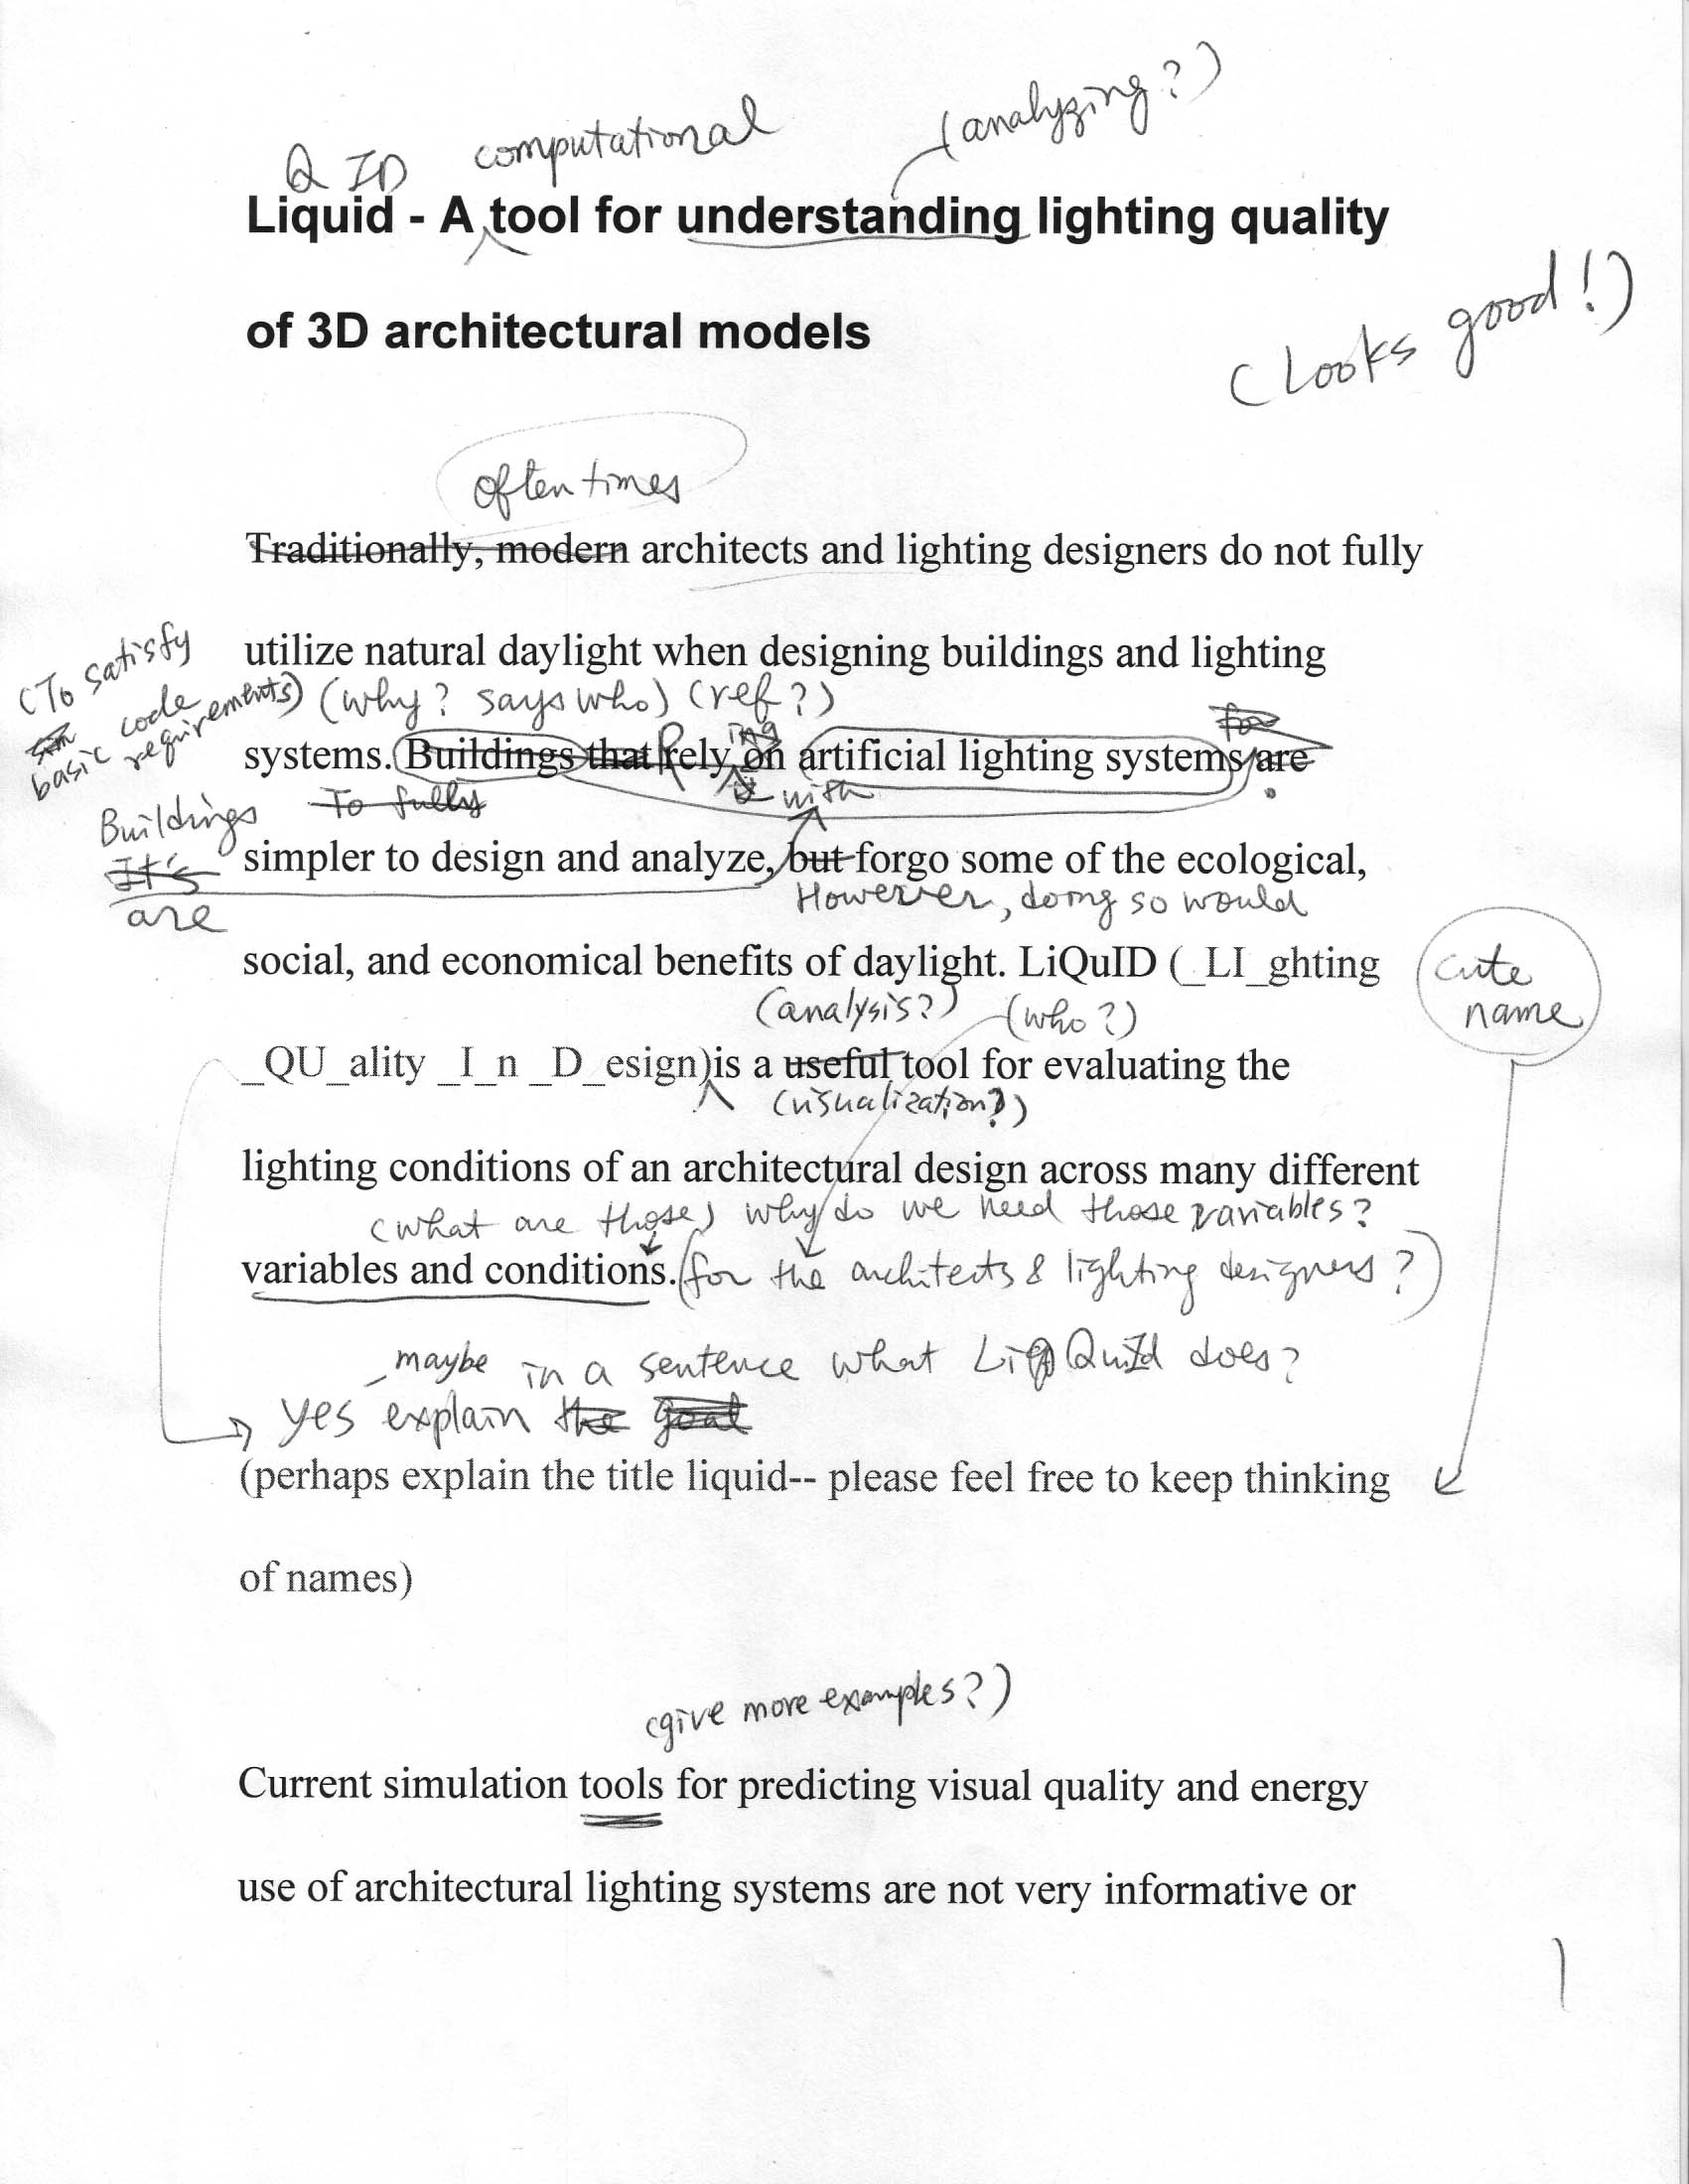 (analyzing?)
Q ID computational
Liquid - A tool for understanding lighting quality
of 3D architectural models
(Looks good!)
often times
Traditionally, modern architects and lighting designers do not fully
utilize natural daylight when designing buildings and lighting
(To satisfy
basic code
requirements) (why? says who) (ref?)
for
ing
systems. Buildings that rely on artificial lighting systems are
Buildings To fully with
It's
simpler to design and analyze, but forgo some of the ecological,
are However, doing so would
social, and economical benefits of daylight. LiQuID (_LI_ghting
cute
name
(analysis?) (who?)
_QU_ality _I_n _D_esign)is a useful tool for evaluating the
(visualization?)
lighting conditions of an architectural design across many different
(what are those) why do we need those variables?
variables and conditions. (for the architects & lighting designers?)
maybe in a sentence what LiQuId does?
yes explain the goal
(perhaps explain the title liquid-- please feel free to keep thinking
of names)
(give more examples?)
Current simulation tools for predicting visual quality and energy
use of architectural lighting systems are not very informative or
1